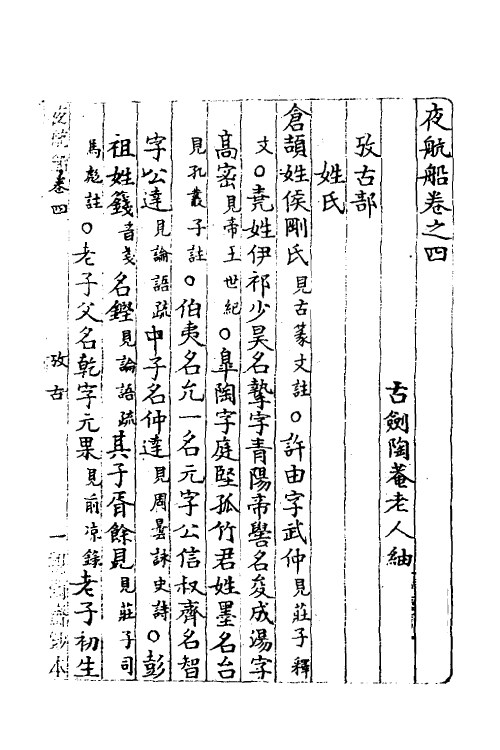 夜航船卷之四
古劍陶菴老人紬
攷古部
姓氏
倉頡姓侯剛氏見古篆文註○許由字武仲見莊子釋
文○堯姓伊祁少昊名摯字青陽帝嚳名夋成湯字
高密見帝王世紀○皐陶字庭堅孤竹君姓墨名台
見孔叢子註○伯夷名允一名元字公信叔齊名智
字公達見論語疏中子名仲達見周曇詠史詩○彭
祖姓籛音戔名鏗見論語疏其子胥餘見見莊子司
馬彪註○老子父名乾字元果見前凉錄老子初生
卷四
攷古
一
本